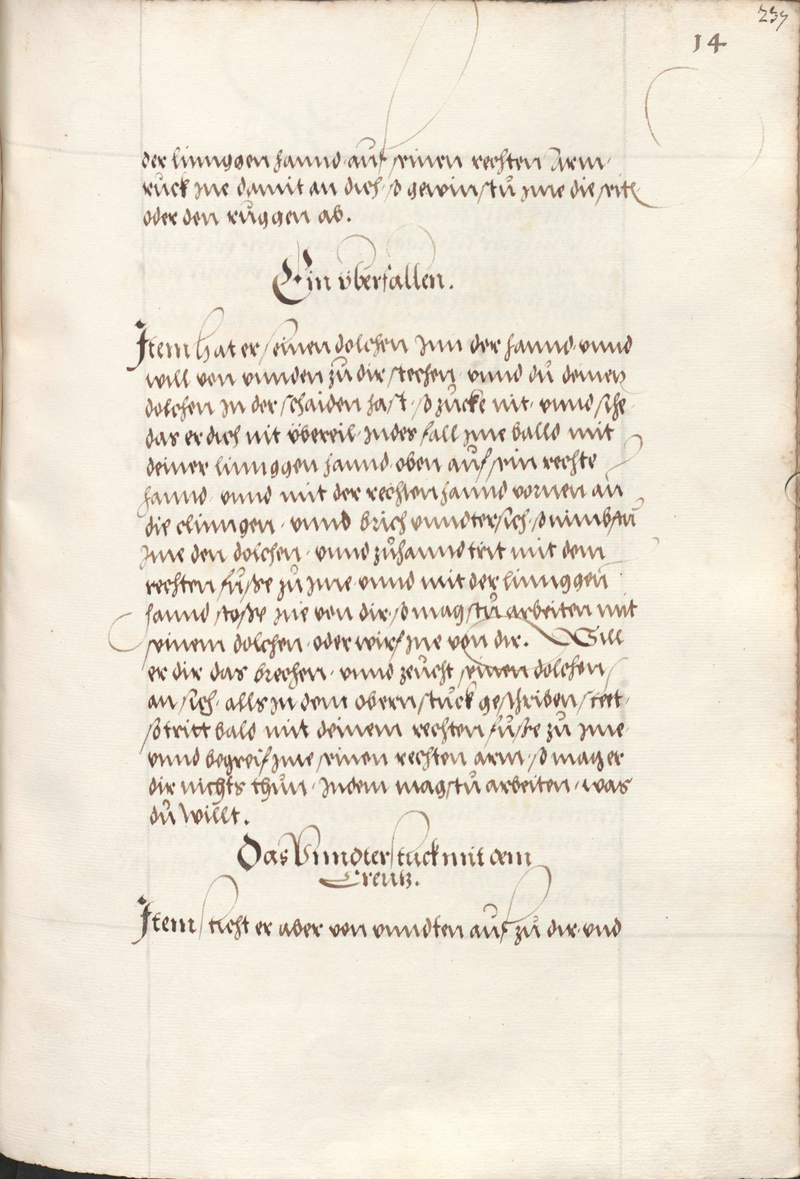 237
14
der linnggen hannd auf seinen rechten Arm
ruck jne damit an dich, so gewinstu jne die seitt
oder den ruggen ab.
Ein überfallen.
Item hat er seinen dolchen jnn der hannd vnnd
will von vnnden zů dir stechen, vnnd dů deinen
dolchen jn der schaiden hast, so zucke nit, vnnd sihe
das er dich nit übereil, jndes fall jme balld mit
deiner linnggen hannd oben auf sein rechte
hannd, vnnd mit der rechten hannd vornen an
die clinngen, vnnd brich vnndtersich, so nimbstu
jme den dolchen, vnnd zůhannd trit mit dem
rechten fůsse zů jme vnnd mit der linnggen
hannd stosse jne von dir, so magstu arbeiten mit
seinem dolchen, oder wirf jne von dir. Will
er dir das brechen, vnnd zeucht seinen dolchen
an sich, alls jn dem obern stuck geschriben steet,
so tritt bald mit deinem rechten fůsse zů jme
vnnd begreif jme seinen rechten arm, so mag er
dir nichts thůn, jndem magstů arbeiten, was
dů willt.
Das Vnndterstuck mit dem
Creutz.
Item sticht er aber von vnndten auf zů dir, vnd